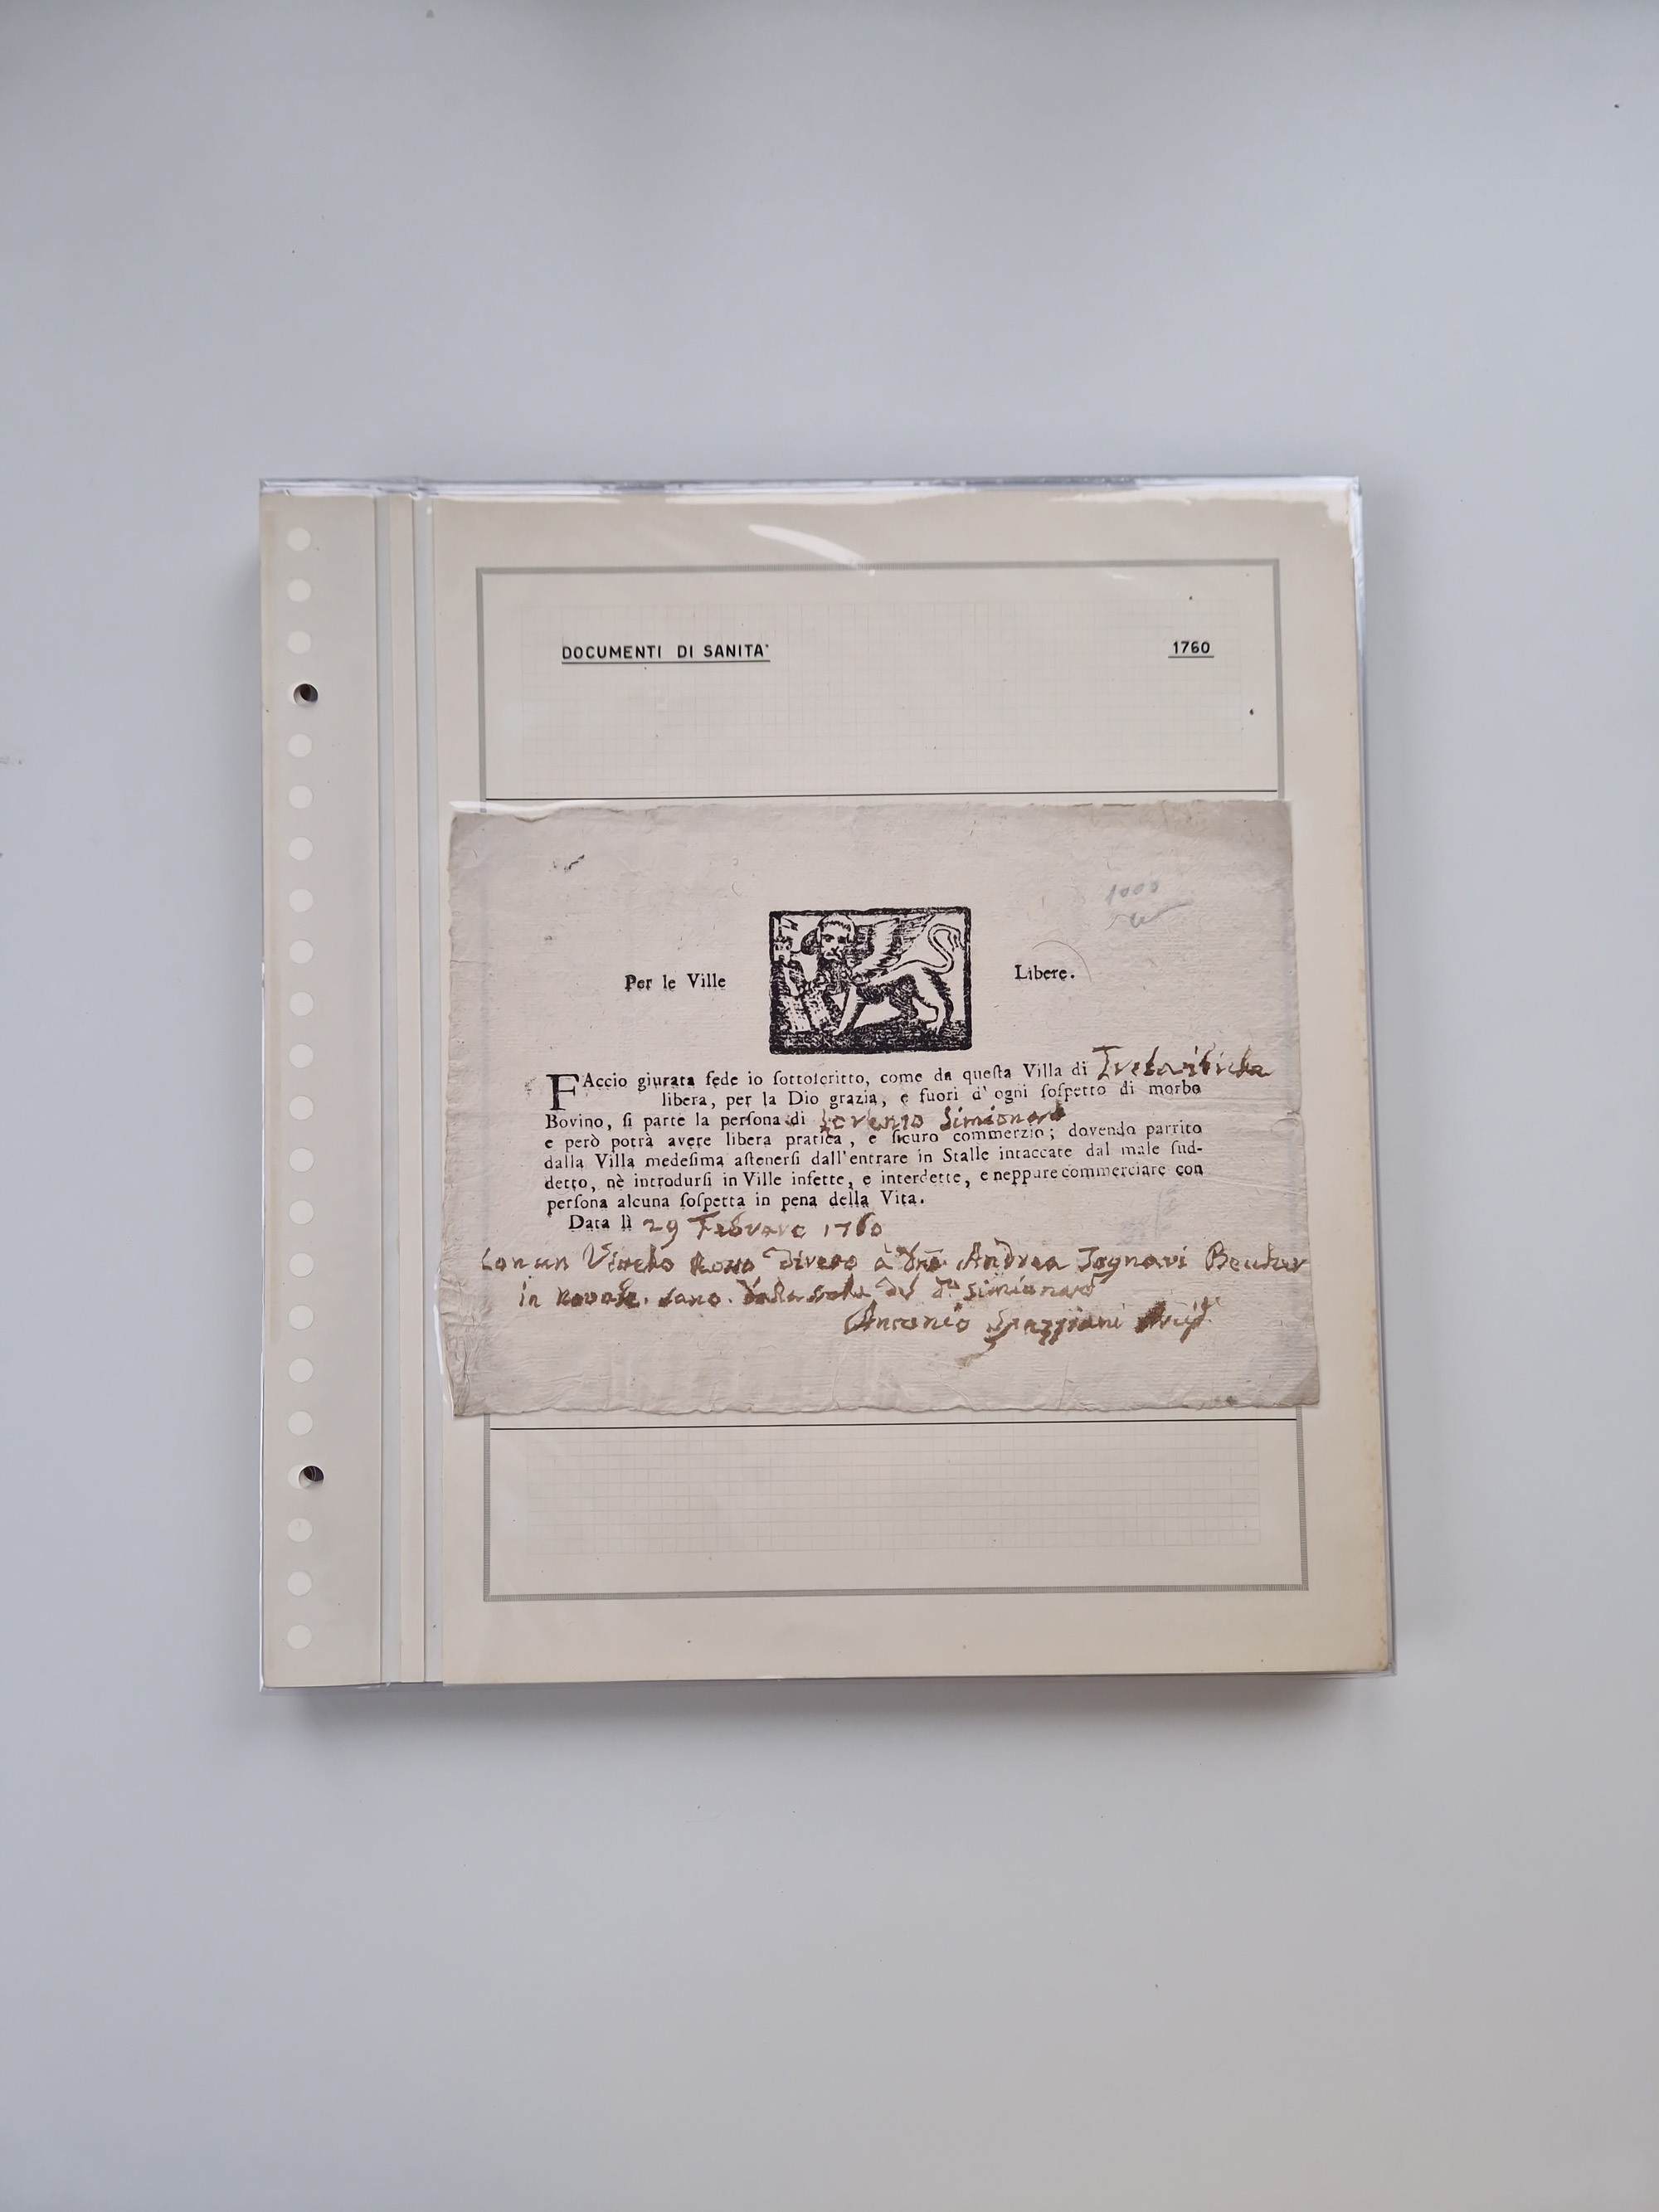 DOCUMENTI DI SANITA'
1760
1000
Per le Ville
Libere.
FAccio giurata fede io ſottoſcritto, come da queſta Villa di
libera, per la Dio grazia, e fuori d' ogni ſoſpetto di morbo
Bovino, ſi parte la perſona di Simionato
e però potrà avere libera pratica, e ſicuro commerzio; dovendo partito
dalla Villa medeſima aſtenerſi dall'entrare in Stalle intaccate dal male ſud-
detto, nè introdurſi in Ville infette, e interdette, e neppure commerciare con
perſona alcuna ſoſpetta in pena della Vita.
Data lì 29 Febraro 1760
Con un Rosso à Andrea
in sano. del Simionato
Antonio